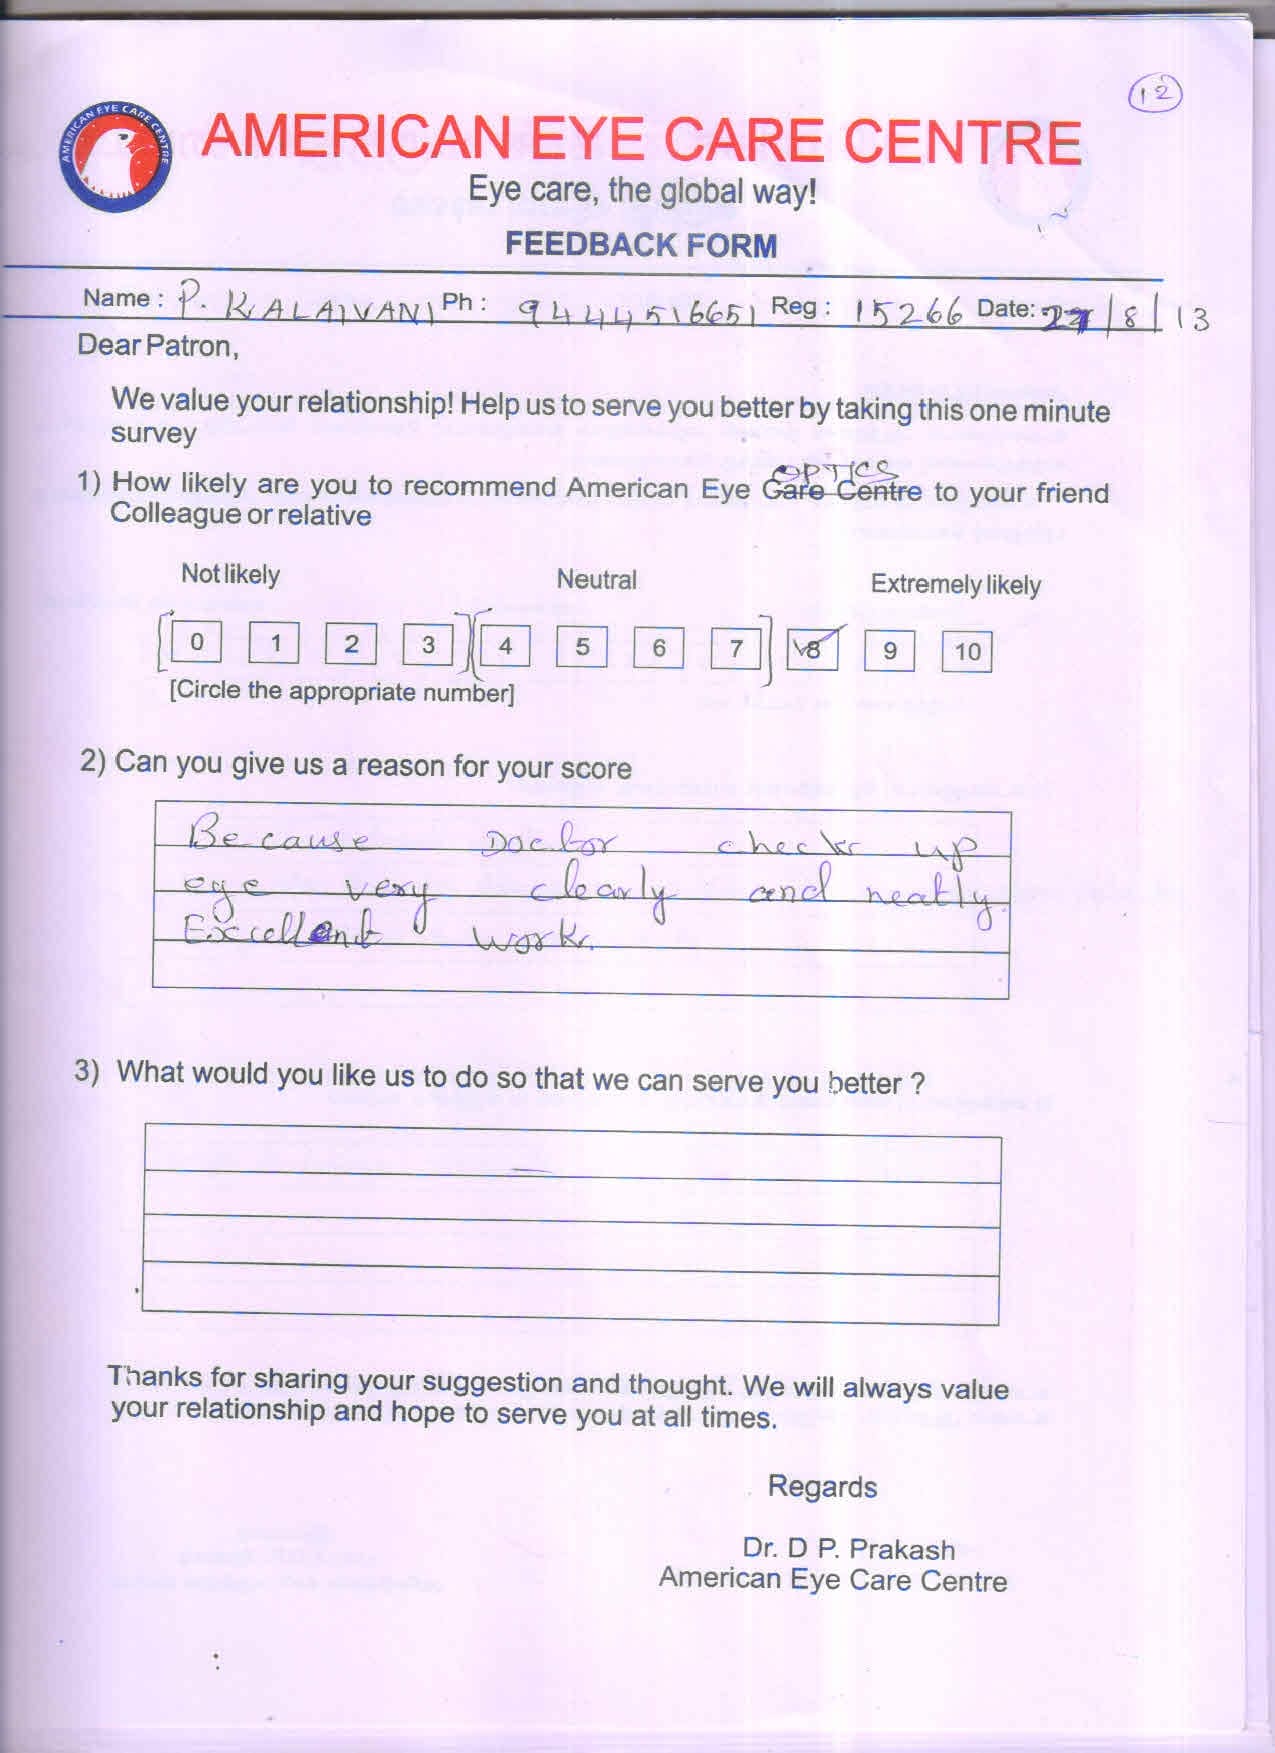 12
AMERICAN EYE CARE CENTRE
AMERICAN EYE CARE CENTRE
Eye care, the global way!
FEEDBACK FORM
Name : P. KALAIVANI Ph : 9444516651 Reg : 15266 Date: /8/13
Dear Patron,
We value your relationship! Help us to serve you better by taking this one minute
survey
OPTICS
1) How likely are you to recommend American Eye Care Centre to your friend
Colleague or relative
Not likely Neutral Extremely likely
0 1 2 3 4 5 6 7 8 9 10
[Circle the appropriate number]
2) Can you give us a reason for your score
Because Doctor check up
eye very clearly and neatly.
Excellent work.
3) What would you like us to do so that we can serve you better ?
Thanks for sharing your suggestion and thought. We will always value
your relationship and hope to serve you at all times.
Regards
Dr. D P. Prakash
American Eye Care Centre